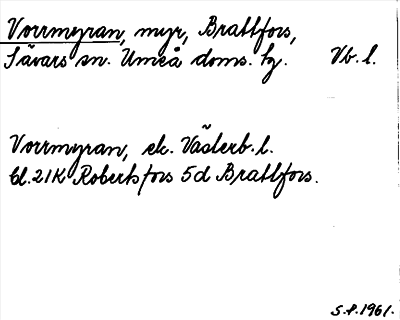 Vorrmyran, myr, Brattfors,
Sävars sn. Umeå doms. hg. Vb. l.
Vorrmyran, ek. Västerb. l.
bl. 21K Robertsfors 5d Brattfors.
S.P. 1961.